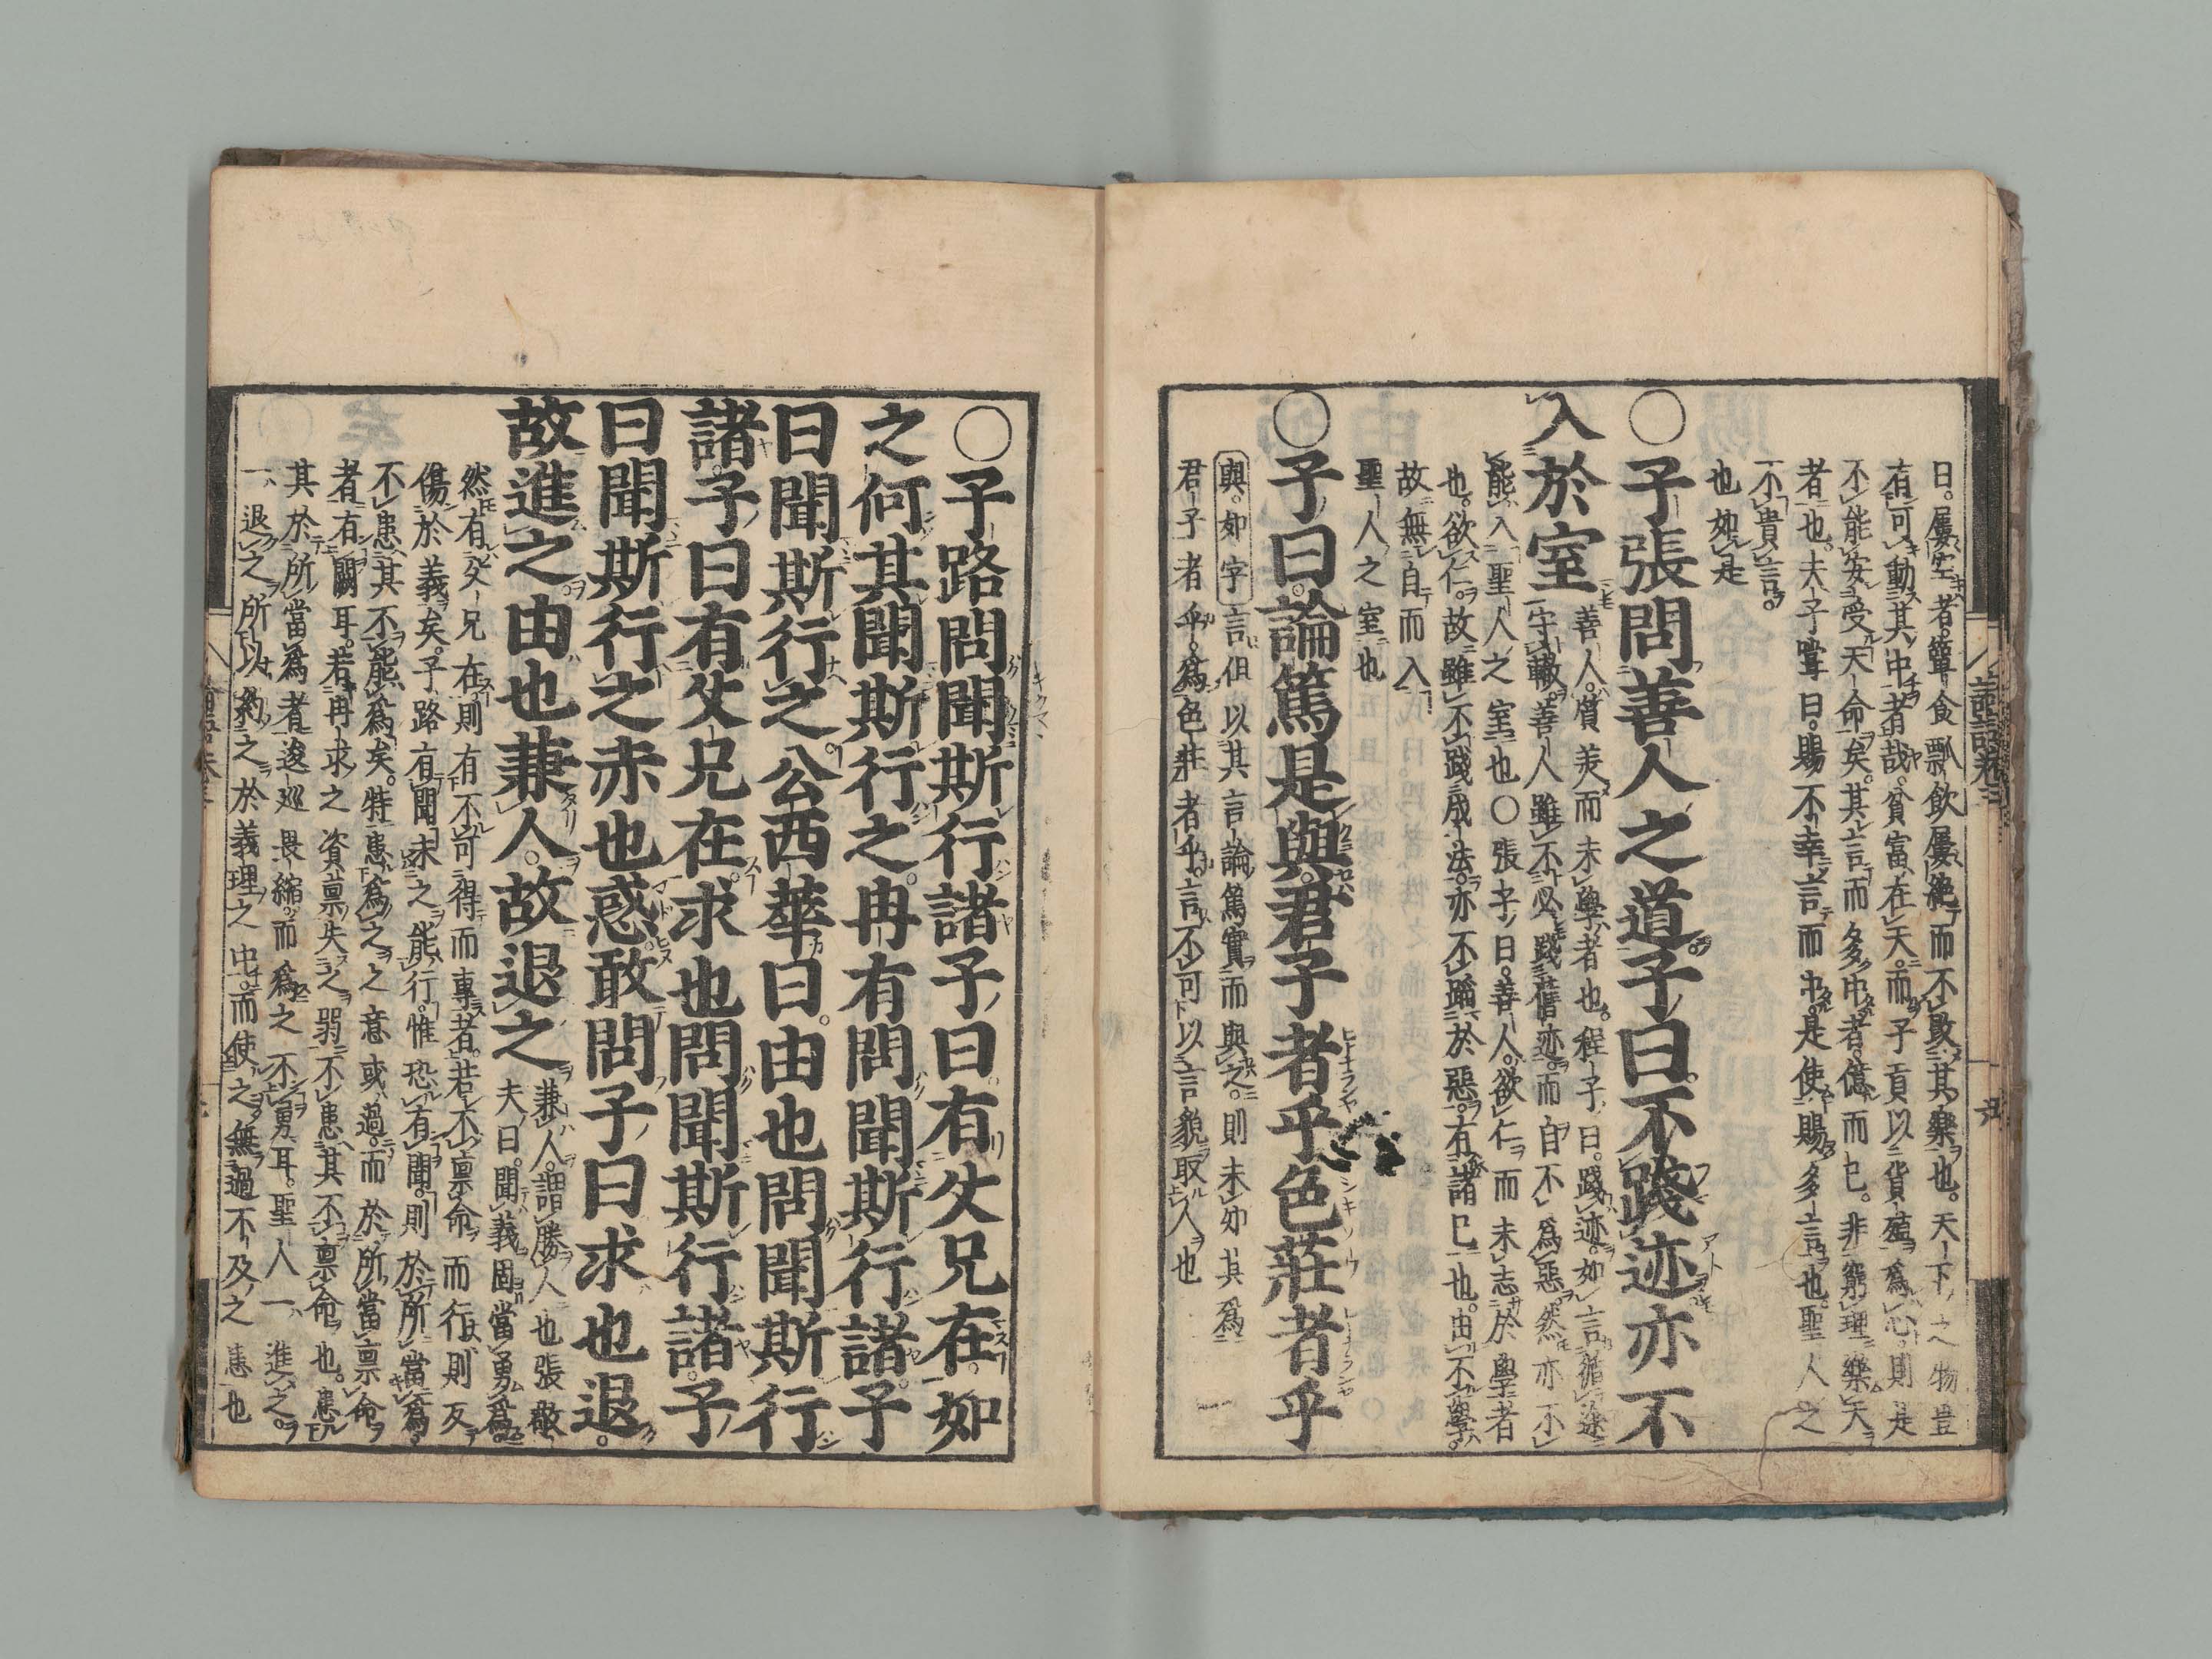 曰。屢空者。簞食瓢飲屢絶而不改其樂也。天下之物豈
有可動其中者哉。貧富在天。而子貢以貨殖爲心。則是
不能安受天命矣。其言而多中者。億而已。非窮理樂天
者也。夫子嘗曰。賜不幸言而中。是使賜多言也。聖人之
不貴言。
也如是
○子張問善人之道子曰。不踐迹亦不
入於室
善人。質美而未學者也。程子曰。踐迹。如言循途
守轍。善人雖不必踐舊迹。而自不爲惡。然亦不
能入聖人之室也○張子曰。善人。欲仁而未志於學者
也。欲仁。故雖不踐成法。亦不蹈於惡。有諸己也。由不學。
故無自而入
聖人之室也
○子曰。論篤是與。君子者乎色莊者乎
與。如字 言但以其言論篤實而與之。則未知其爲
君子者乎。爲色莊者乎。言不可以言貌取人也
論語卷三
○子路問聞斯行諸子曰。有父兄在。如
之何其聞斯行之。冉有問聞斯行諸。子
曰聞斯行之。公西華曰。由也問聞斯行
諸。子曰有父兄在。求也問聞斯行諸。子
曰聞斯行之赤也惑。敢問子曰求也退。
故進之。由也兼人。故退之
兼人。謂勝人也張敬
夫曰。聞義固當勇爲。
然有父兄在。則有不可得而專者。若不稟命而行。則反
傷於義矣。子路有聞未之能行。惟恐有聞。則於所當爲。
不患其不能爲矣。特患爲之之意或過。而於所當稟命
者有闕耳。若冉求之資稟失之弱。不患其不稟命也。患
其於所當爲者。逡巡畏縮。而爲之不勇耳。聖人一進之。
一退之。所以約之於義理之中。而使之無過不及之患也